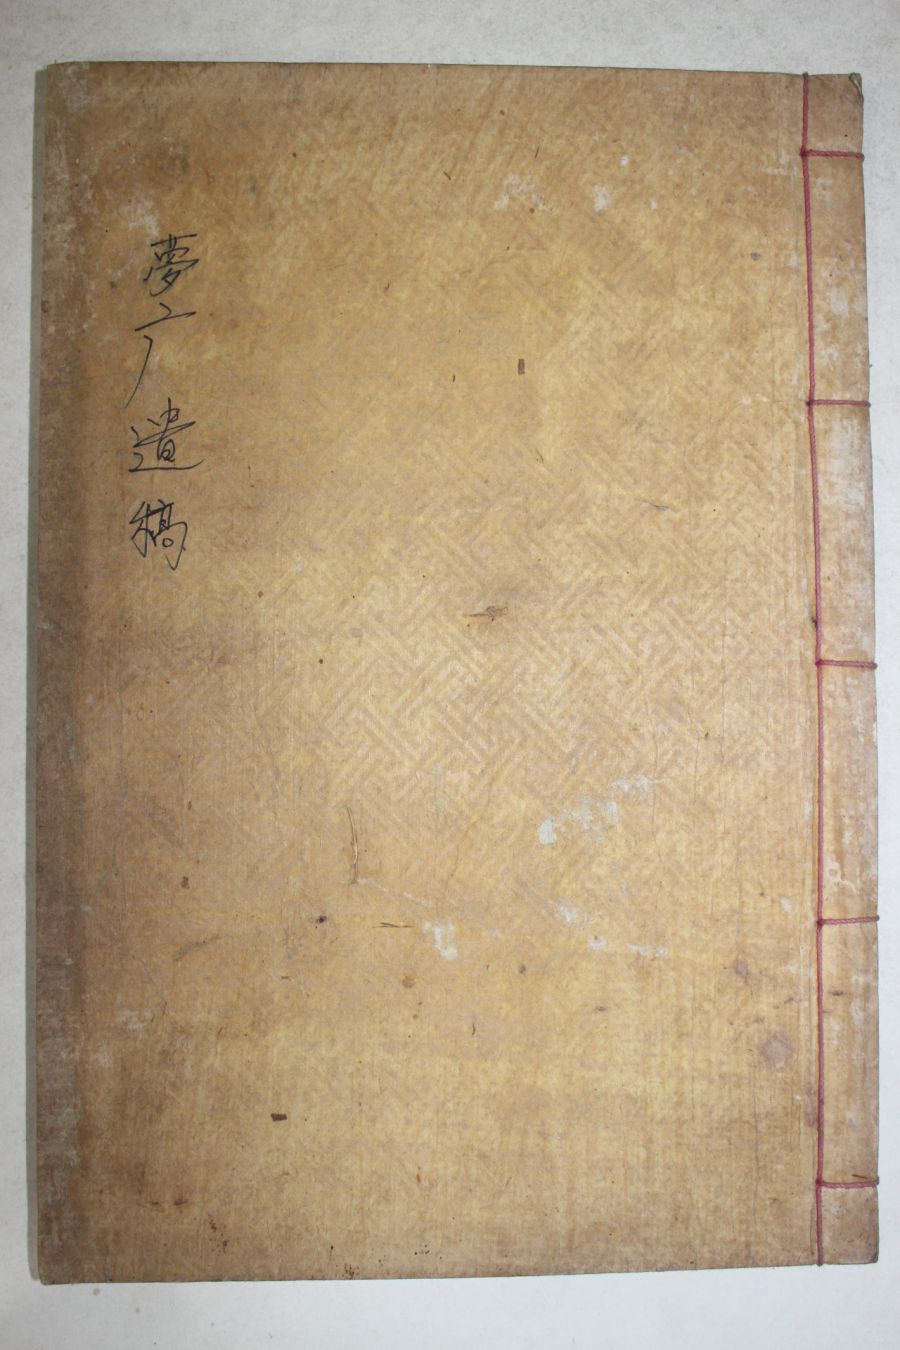 夢广遺稿